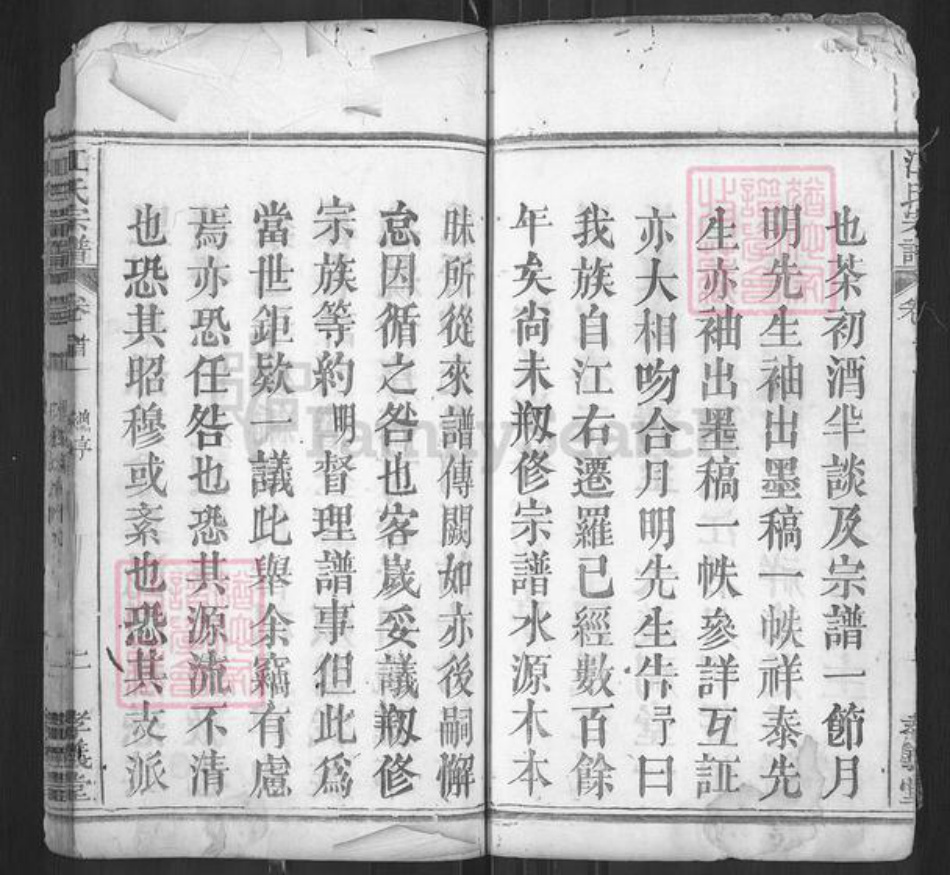 也茶初酒半談及宗譜一節月
明先生袖出墨稿一帙祥泰先
生亦袖出墨稿一帙參詳互証
亦大相吻合月明先生告予曰
我族自江右遷羅已經數百餘
年矣尚未剏修宗譜水源木本
昧所從來譜傳闕如亦後嗣懈
怠因循之咎也客歲妥議剏修
宗族等約明督理譜事但此爲
當世鉅欵一議此舉余竊有慮
焉亦恐任咎也恐其源流不清
也恐其昭穆或紊也恐其支派
江氏宗譜
卷首
孝義堂
FamilySearch